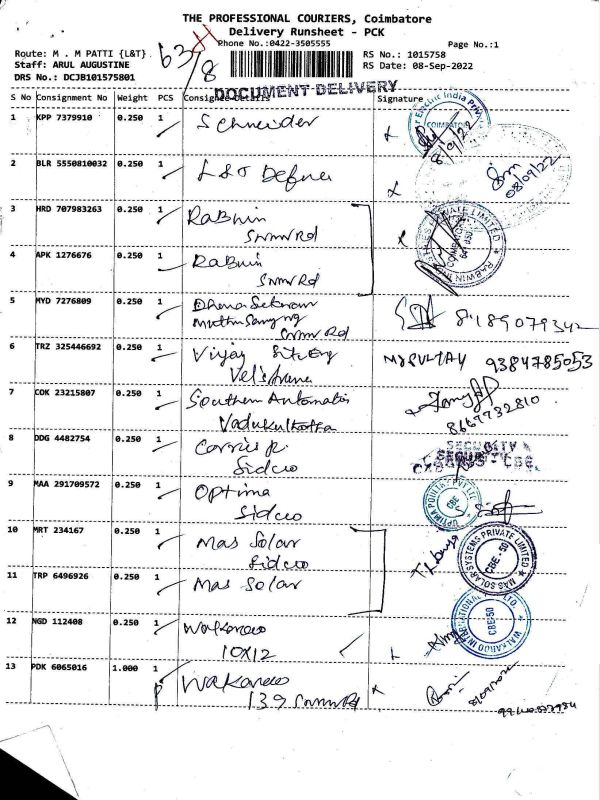 THE PROFESSIONAL COURIERS, Coimbatore
Delivery Runsheet - PCK
Phone No.:0422-3505555
Page No.:1
Route: M . M PATTI {L&T}
RS No.: 1015758
Staff: ARUL AUGUSTINE
RS Date: 08-Sep-2022
DRS No.: DCJB101575801
63
8
DOCUMENT DELIVERY
S No Consignment No Weight PCS Consignee Details Signature
1 KPP 7379910 0.250 1 Schneider
COIMBATORE
8/9/22
2 BLR 5550810032 0.250 1 L&T
08/09/22
3 HRD 707983263 0.250 1 RaBwin
SnmvRd
RABWIN
4 APK 1276676 0.250 1 RaBwin
SnmvRd
5 MYD 7276809 0.250 1
SnmvRd
8189079342
6 TRZ 325446692 0.250 1 Vijay
9384785053
7 COK 23215807 0.250 1 Southern Automatis
Vadukulkotta
8667732810
8 DDG 4482754 0.250 1 Carries
Sidco
SECURITY
9 MAA 291709572 0.250 1 Optima
Sidco
CBE
10 MRT 234167 0.250 1 Mas Solar
Sidco
MAS SOLAR SYSTEMS PRIVATE LIMITED
CBE-50
11 TRP 6496926 0.250 1 Mas Solar
12 NGD 112408 0.250 1 Walkaroo
10X12
WALKAROO INTERNATIONAL
CBE-50
13 PDK 6065016 1.000 1 Walkaroo
139 SnmvRd